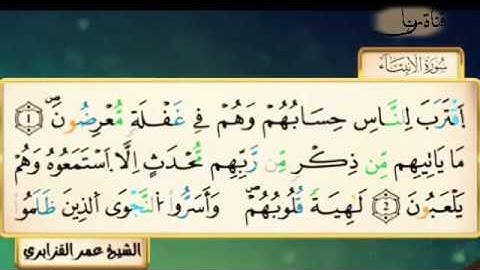 قناة ربنا
سُورَةُ الأَنبِيَاء
اَ۪قْتَرَبَ لِلنَّاسِ حِسَابُهُمْ وَهُمْ فِے غَفْلَةٖ مُّعْرِضُونَۖ 1
مَا يَاتِيهِم مِّن ذِكْرٖ مِّن رَّبِّهِم مُّحْدَثٍ اِلَّا اَ۪سْتَمَعُوهُ وَهُمْ
يَلْعَبُونَ 2 لَٰهِيَةٗ قُلُوبُهُمْۖ وَأَسَرُّواْ اُ۬لنَّجْوَى اَ۬لذِينَ ظَلَمُواْ
الشيخ عمر القزابري